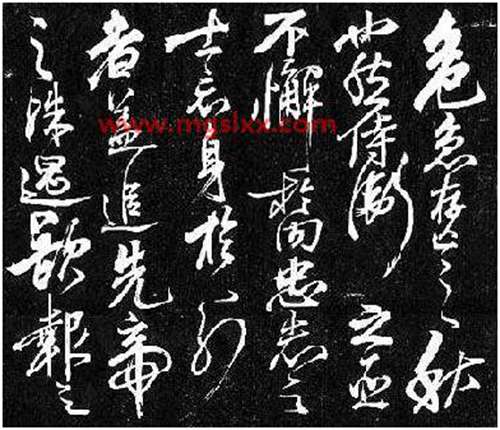 危急存亡之秋
也然侍衛之臣
不懈於内忠志之
士忘身於外
者蓋追先帝
之殊遇欲報之
www.mgslxx.com